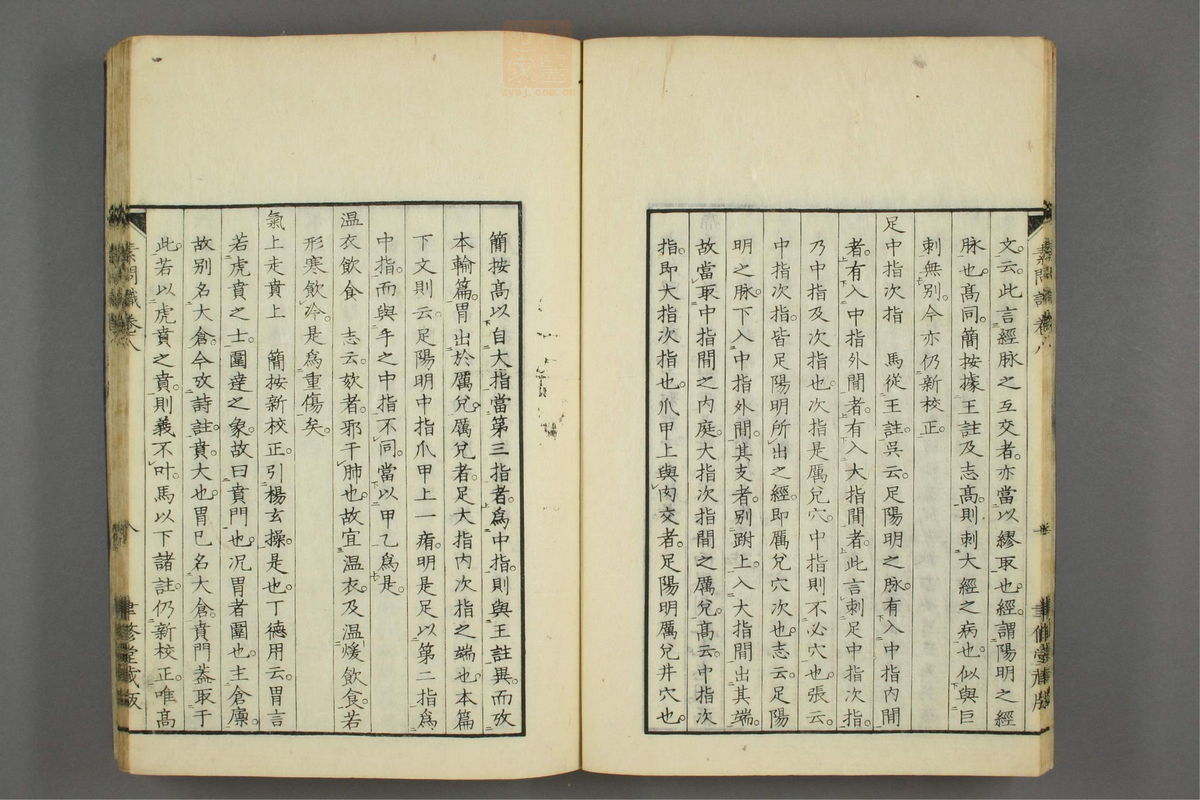 文。云。此言經脉之互交者。亦當以繆取也。經。謂陽明之經
脉也。髙同。簡按據王註及志髙。則刺大經之病也。似與巨
刺無別。今亦仍新校正。
足中指次指　馬從王註。吳云。足陽明之脉。有入中指内間
者。有入中指外間者。有入大指間者。此言刺足中指次指。
乃中指及次指也。次指是厲兌穴。中指則不必穴也。張云。
中指次指。皆足陽明所出之經。即厲兌穴次也。志云。足陽
明之脉。下入中指外間。其支者。别跗上。入大指間。出其端。
故當取中指間之内庭。大指次指間之厲兌。髙云。中指次
指。即大指次指也。爪甲上與肉交者。足陽明厲兌井穴也。
素問識 卷八
簡按髙以自大指當第三指者。爲中指。則與王註異。而攷
本輸篇。胃出於厲兌。厲兌者。足大指内次指之端也。本篇
下文則云。足陽明中指爪甲上一痏。明是足以第二指爲
中指。而與手之中指不同。當以甲乙爲是。
温衣飲食　志云。欬者。邪干肺也。故宜温衣。及温煖飲食。若
形寒飲冷。是爲重傷矣。
氣上走賁上　簡按新校正。引楊玄操。是也。丁德用云。胃言
若虎賁之士。圍達之象。故曰賁門也。况胃者圍也。主倉廩。
故别名大倉。今攷詩註。賁。大也。胃已名大倉。賁門蓋取于
此。若以虎賁之賁。則義不叶。馬以下諸註。仍新校正。唯髙
素問識 卷八
八
聿修堂藏版